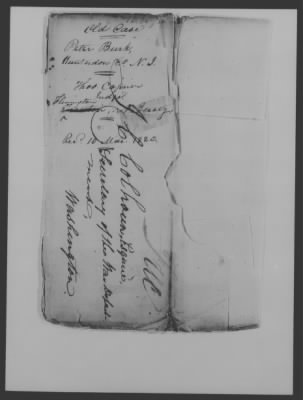 Old Case
Peter Burk,
Hunterdon Co N. J.
Thos Capner
Judge
Jersey
Recd 10 Mar. 1820
J C Colhoun, Esquire,
Secretary of the War Depart-
ment
Washington